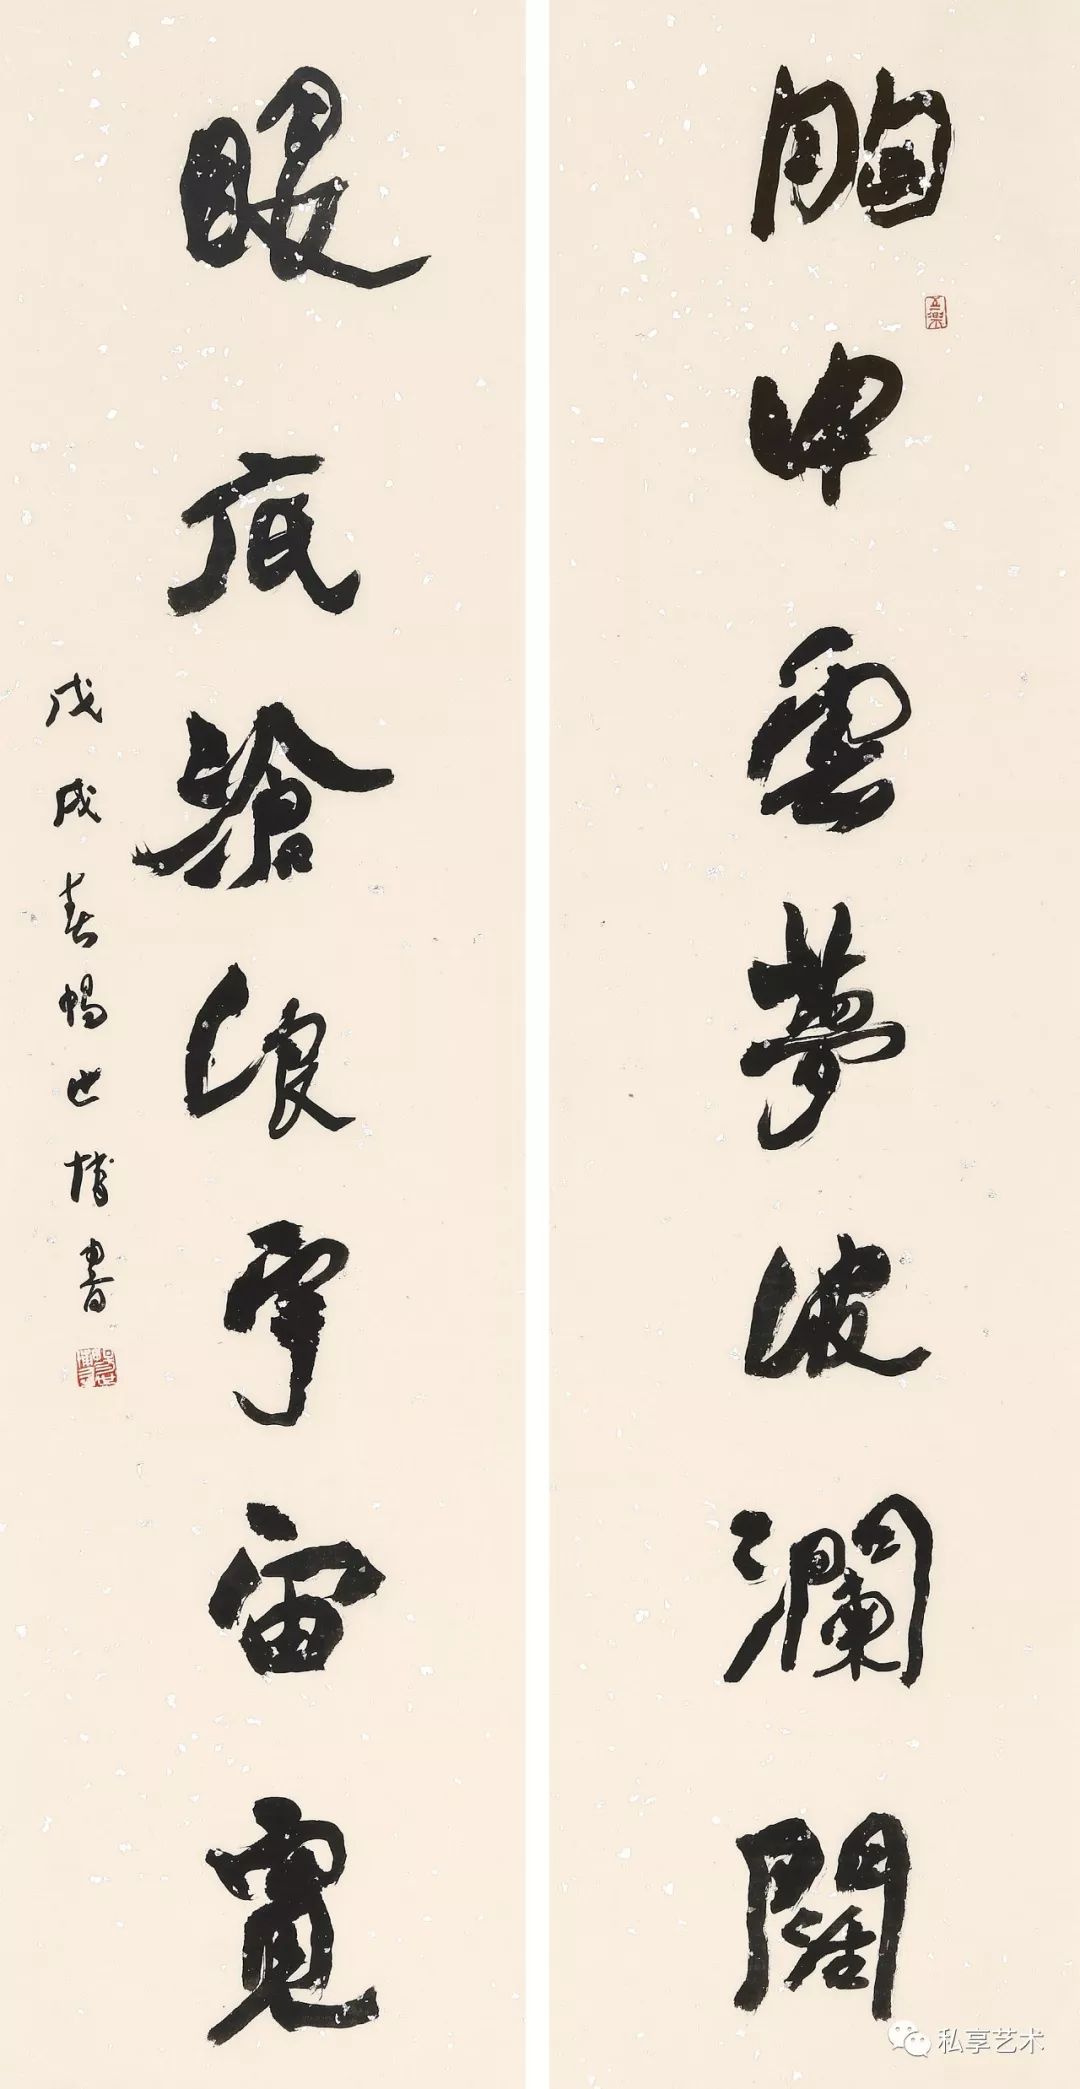 胸中雲夢波瀾闊
眼底滄浪宇宙寬
戊戌春世博書
私享艺术